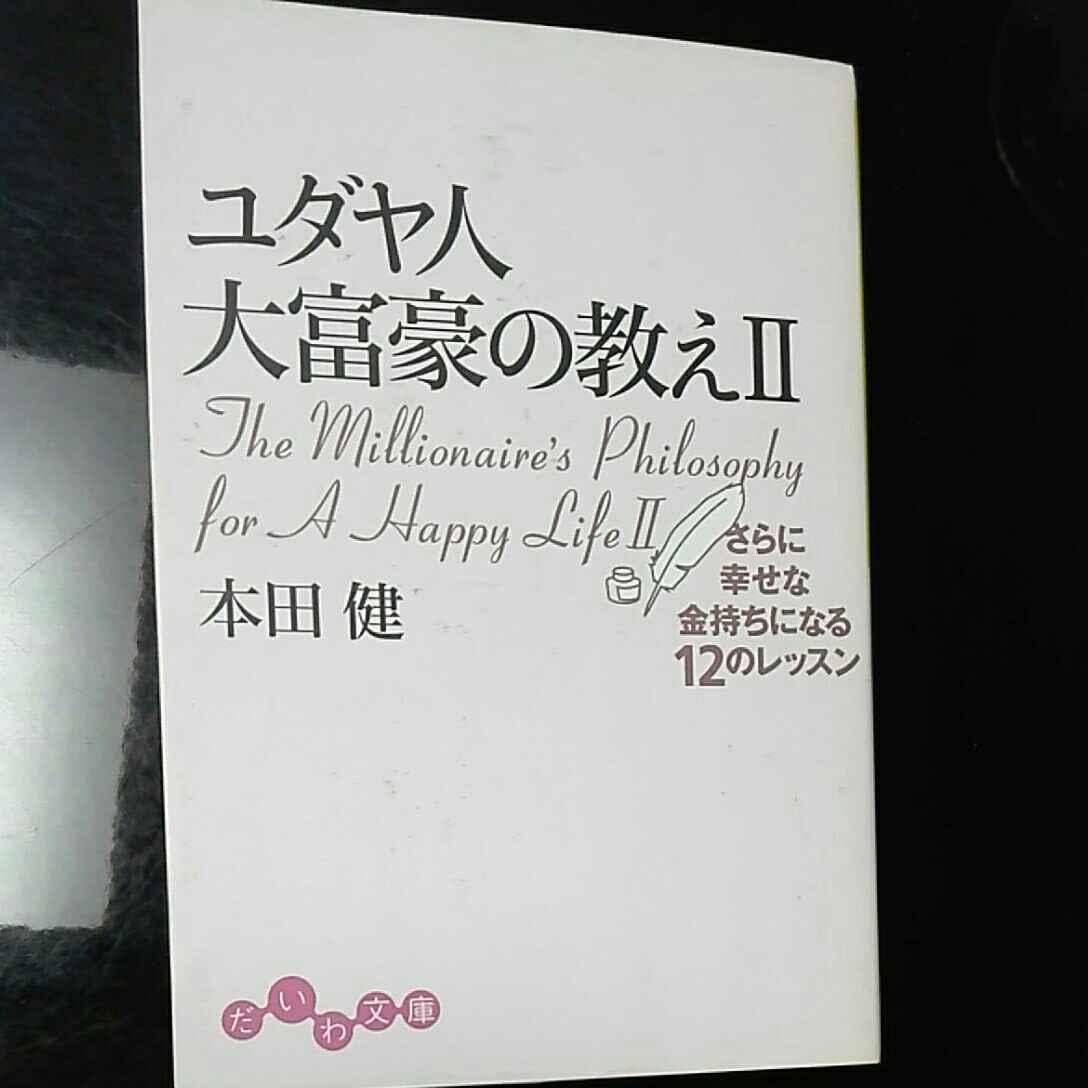 ユダヤ人
大富豪の教えⅡ
The Millionaire's Philosophy
for A Happy Life Ⅱ
本田 健
さらに
幸せな
金持ちになる
12のレッスン
だいわ文庫